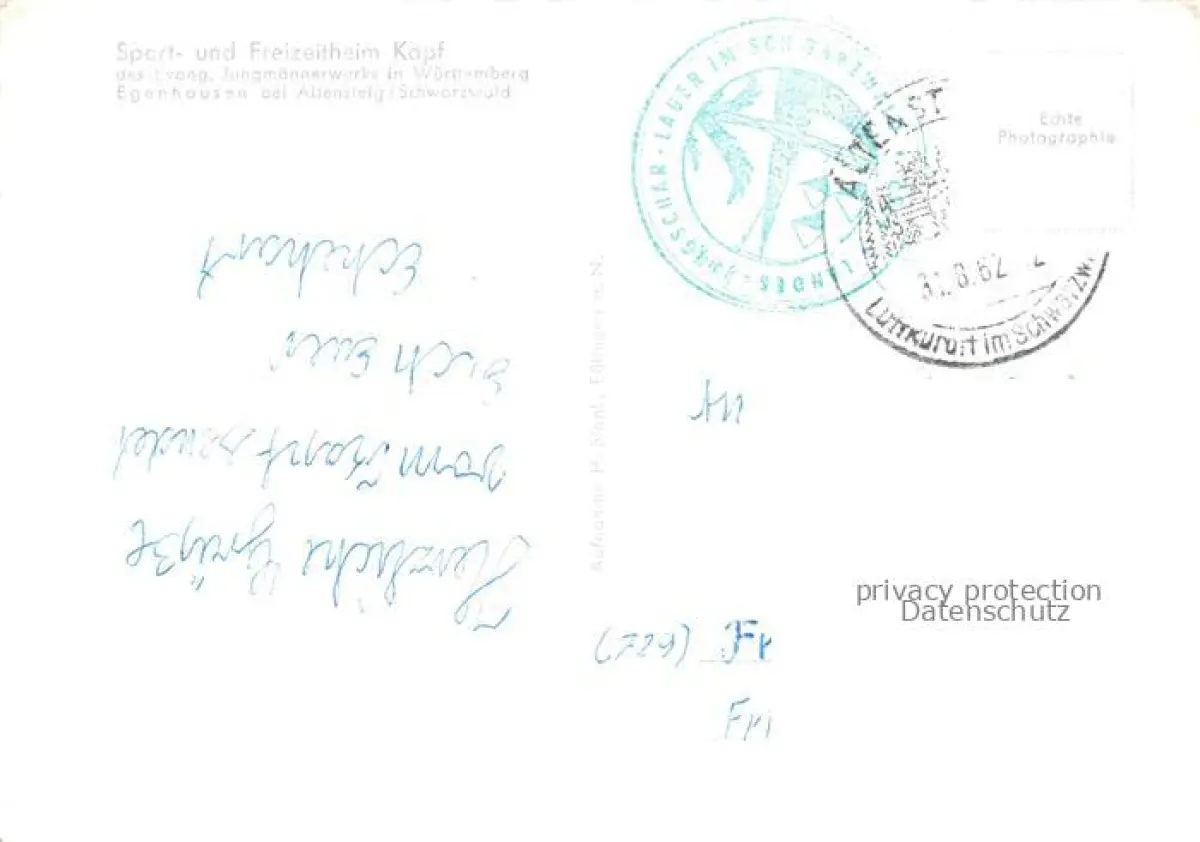 Sport- und Freizeitheim Kapf
des Evang. Jungmännerwerks in Württemberg
Egenhausen bei Altensteig/Schwarzwald
LANDES-JUNGSCHAR-LAGER IM SCHWARZW
ALTENST
31.8.62
Luftkurort im Schwarzw
Echte
Photographie
Herzliche Grüße
vom Kapf sendet
Euch Euer
Ekehart
Aufnahme H. Eßlingen a. N.
An
privacy protection
Datenschutz
(729) Fr
Fri